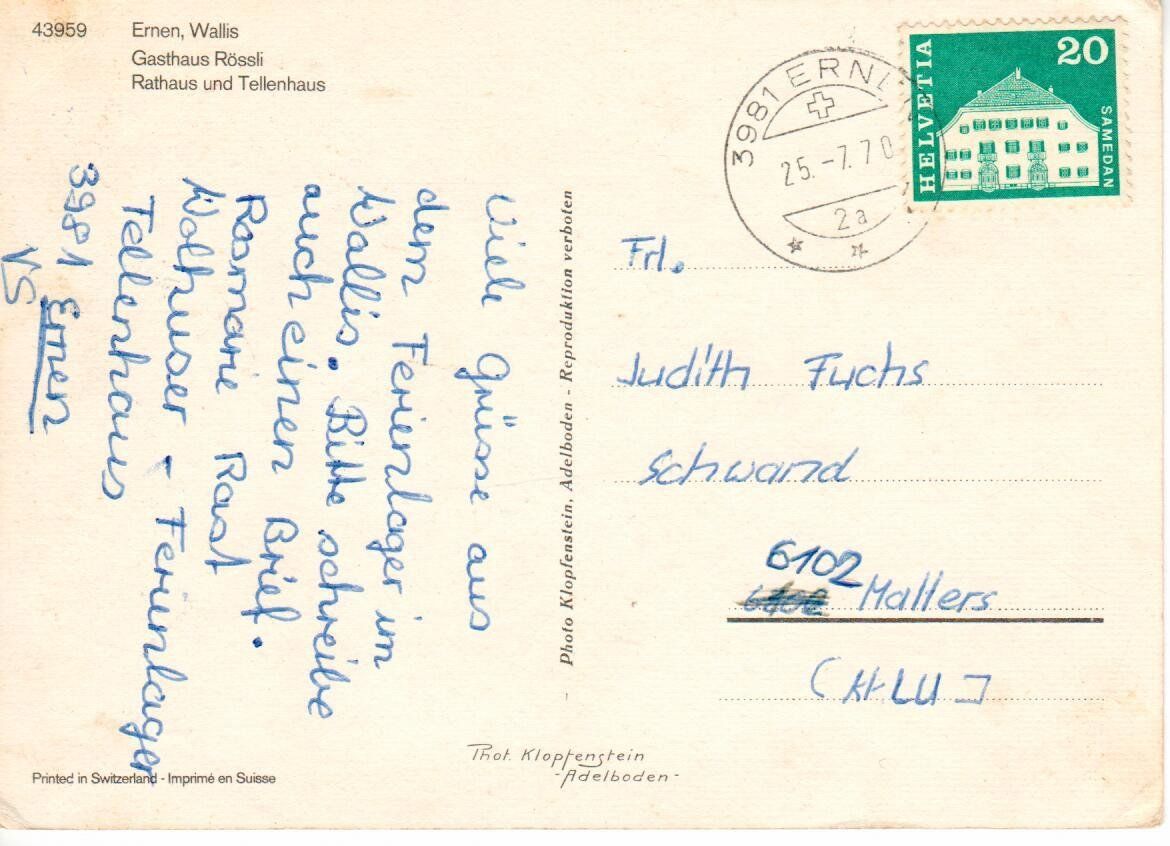 43959 Ernen, Wallis
Gasthaus Rössli
Rathaus und Tellenhaus
Viele Grüsse aus
dem Ferienlager im
Wallis. Bitte schreibe
auch einen Brief.
Rosmarie Rast
Wolhuser - Ferienlager
Tellenhaus
3981 Ernen
VS
Photo Klopfenstein, Adelboden - Reproduktion verboten
3981 ERNEN
25.-7.70
2a
HELVETIA
20
SAMEDAN
Frl.
Judith Fuchs
Schwand
6102 Malters
(Kt. LU)
Phot. Klopfenstein
-Adelboden-
Printed in Switzerland - Imprimé en Suisse